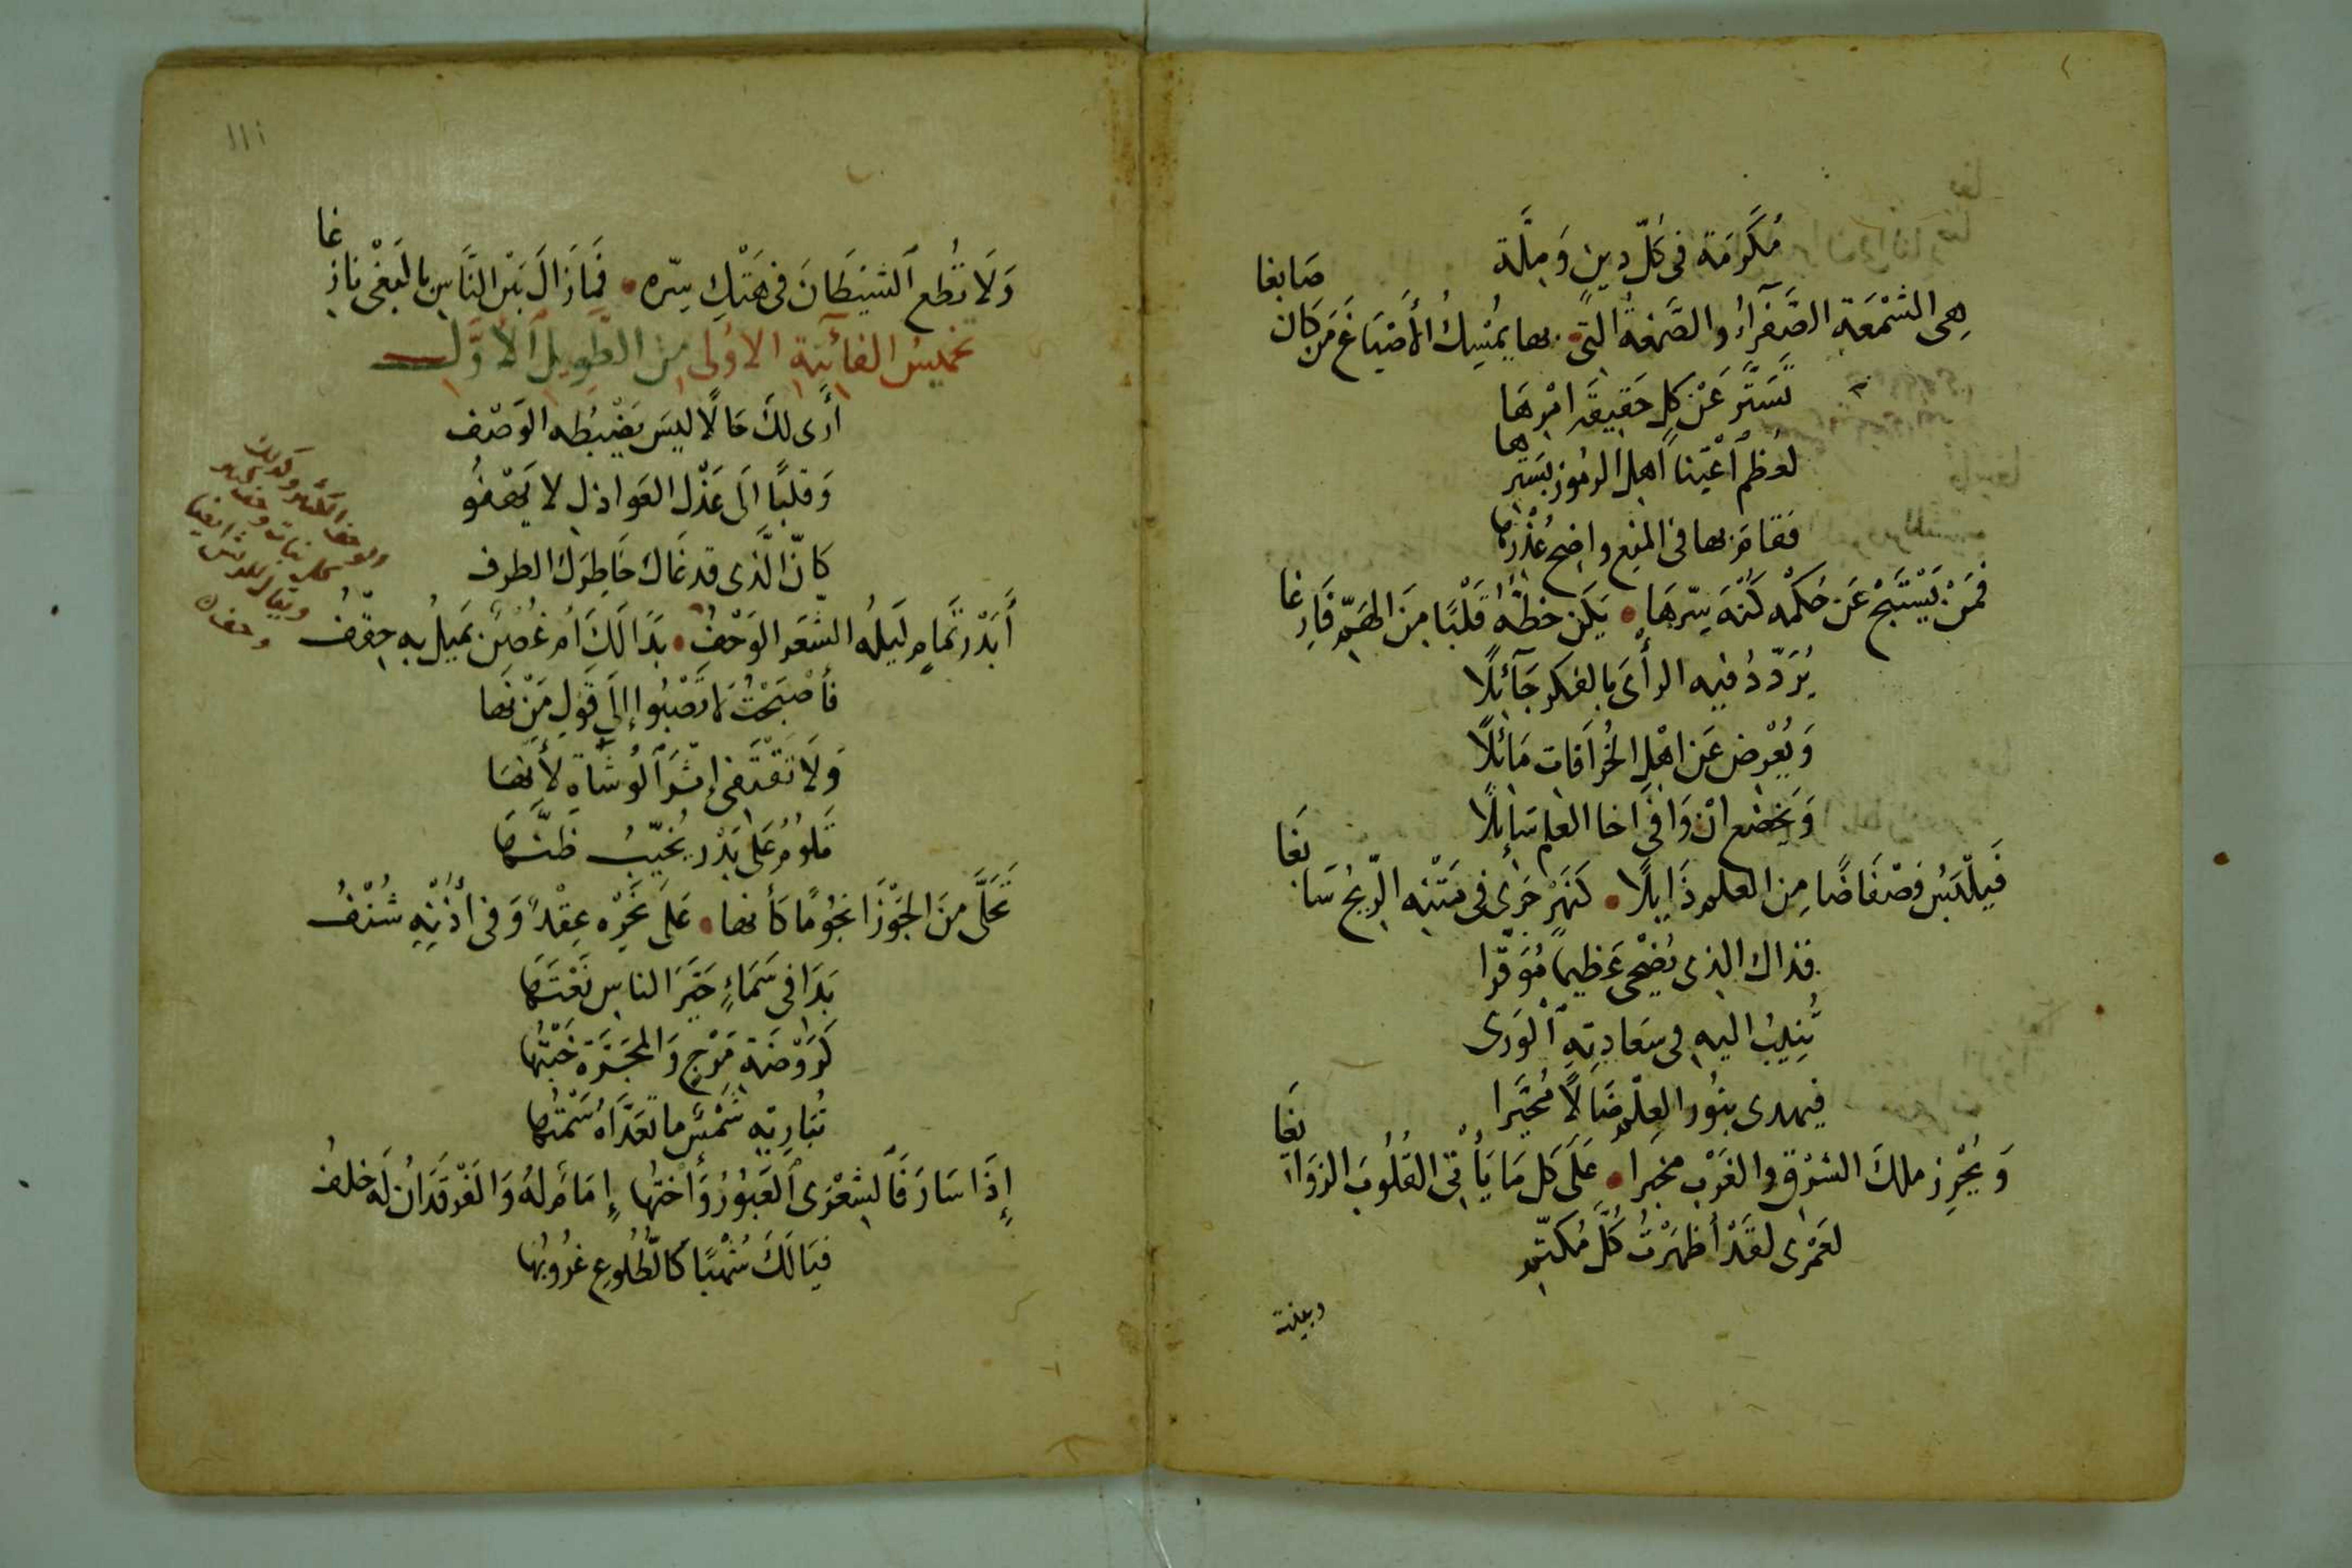 مُكَرَّمَة فى كُلّ دِينٍ وَمِلَّة
هِى الشمْعَة الصَّفرَاءُ والصَّبغةُ التِى بها يُمْسِكُ الأَصْبَاغَ مَن كان صَابغا
تَسَتَّرَ عَنْ كلِ حَقِيقَة امْرِهَا
لعُظم أعْيَنا أهلَ الرمُوز بسَترها
فقامَ بها فى المنِع واضِح عُذْرهَا
فَمَنْ يَسْتَبحْ عَن حُكْمه كُنْهَ سِرّهَا يَكن حَظهُ قَلْبًا مِنَ الهَمِّ فَارِغا
يُرَدّدُ فيه الرأىَ بالفكر جَآئِلًا
وَيُعْرِض عَن اهْلِ الخُرَافَات مَائلًا
وَيَخضَع انْ وَافَى اخا العلم سَائِلًا
فَيلْبَسُ فضْفَاضًا مِن العلم ذَايِلًا كَنَهْرٍ جَرَى فى مَتْنِه الرِّيحُ سَابغَا
فذاك الذى يُضْحِى عَظيما مُوَقّرا
تُنِيبُ اليهِ فى سَعَادتِهِ ٱلْوَرَى
فيهدى بنُور العِلْمِ ضَالًا مُحَيَّرا
وَيُحْرِز ملكَ الشرْق والغَرْب مخبرا عَلَى كل مَا يَأْتى القُلُوبَ الزوَايغَا
لعَمْرى لقَدْ أظهَرْتُ كُلَّ مُكَتّم
ااا
وَلَا تُطع ٱلشيْطَانَ فى هَتْكِ سِرّه فَمَازَالَ بَيْن النَّاسِ بالبَغْى نازِغا
تخميسُ الفآئية الاوُلى مِن الطَّوِيل الأَوَّل
أَرى لكَ حَالًا ليسَ يَضْبُطه الوَصْف
وَقلبًا الَى عَذْل العَواذِل لا يَهْفُو
كانّ الَّذى قد غَاك خَاطِرَك الطرف
أَبَدْر تَمامٍ لَيلُه الشعَر الوَحْفُ بَدَا لَكَ أم غُصْنٌ يَميلُ بِه حِقْفُ
فأصْبَحْتُ لا تَصْبُوا إلَى قَولِ مَنْ نَهَا
وَلَا تَقْتَفى إثْرَ ٱلوُشَاةِ لأَنهَا
تَلوُمُ عَلى بَدْر يُخَيّبُ ظَنَّهَا
تَحَلَّى مِنَ الجَوْزَا نجُومًا كأنها عَلَى نَحْرِه عِقْدٌ وَفى أُذْنِهِ شُنْفُ
بَدَا فى سَمَاءٍ حَيَّرَ الناسِ نَعْتَهَا
كَرَوْضَة مَرْجٍ وَالمجَرّة خَبْتُهَا
تُبَارِيهِ شَمْسٌ ما تَعَدَّاهُ سَمْتُهَا
إِذَا سَارَ فَالشِعْرَى ٱلعَبُورُ وَأُخْتُها إِمَامٌ لهُ وَالفَرْقَدَانِ لَه خلفُ
فيَا لَكَ شُهْبًا كَالطُلُوعِ غُرُوبُهَا